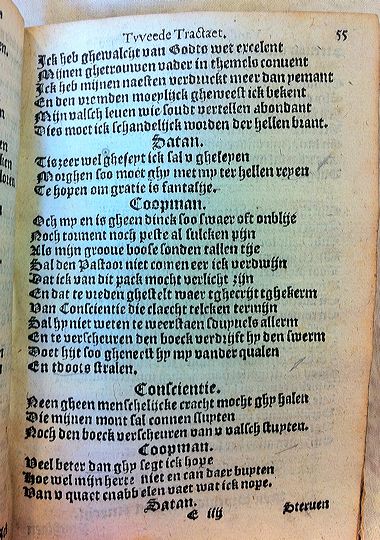 Tvveede Tractaet. 55
Ick heb ghewalcht van Godto wet excelent
Mijnen ghetrouwen vader in themels conuent
Ick heb mijnen naesten verdruckt meer dan yemant
En den vremden moeylijck gheweest ick bekent
Mijn valsch leuen wie soudt vertellen abondant
Dies moet ick schandelijck worden der hellen brant.
Satan.
Tis zeer wel gheseyt ick sal v gheleyen
Morghen soo moet ghy met my ter hellen reyen
Te hopen om gratie is fantasije.
Coopman.
Och my en is gheen dinck soo swaer oft onblije
Noch torment noch peste al sulcken pijn
Als mijn groove boose sonden tallen tije
Sal den Pastoor niet comen eer ick verdwijn
Dat ick van dit pack mocht verlicht zijn
En dat te vreden ghestelt waer tghecrijt tghekerm
Van Conscientie die claecht telcken termijn
Sal hy niet weten te weerstaen sduyuels allerm
En te verscheuren den boeck verdrijft hy den swerm
Doet hijt soo gheneest hy my vander qualen
En tdoots stralen.
Conscientie.
Neen gheen menschelijcke cracht mocht ghy halen
Die mijnen mont sal connen sluyten
Noch den boeck verscheuren van v valsch stuyten.
Coopman.
Veel beter dan ghy segt ick hope
Hoe wel mijn herte niet en can daer buyten
Van v quaet cnabbelen vaet wat ick nope.
Satan.
G iij Steruen